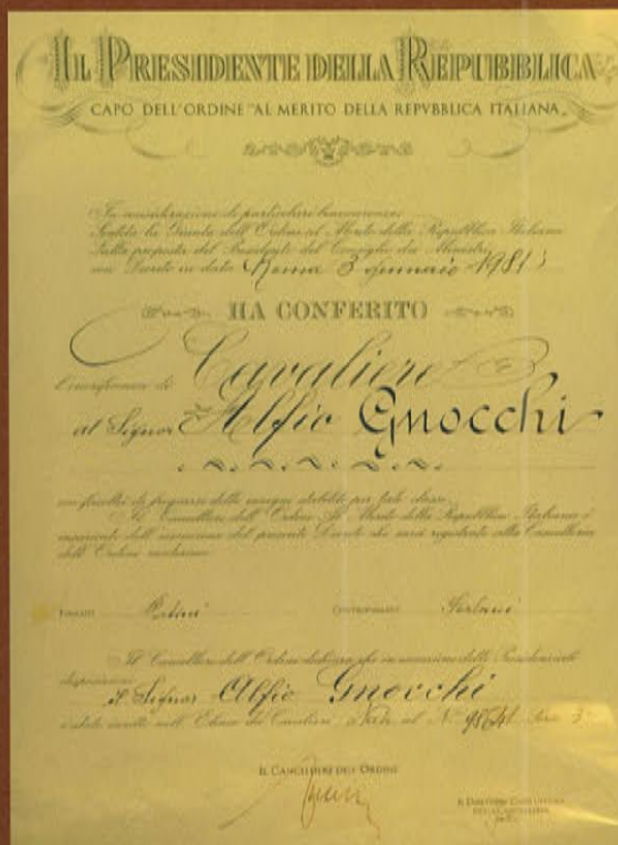 IL PRESIDENTE DELLA REPUBBLICA
CAPO DELL'ORDINE "AL MERITO DELLA REPVBBLICA ITALIANA"
In considerazione di particolari benemerenze
Sentita la Giunta dell'Ordine al Merito della Repubblica Italiana
Sulla proposta del Presidente del Consiglio dei Ministri
con Decreto in data Roma 3 gennaio 1981
HA CONFERITO
l'onorificenza di Cavaliere
al Signor Alfio Gnocchi
con facoltà di fregiarsi delle insegne stabilite per tale classe
Il Cancelliere dell'Ordine al Merito della Repubblica Italiana è
incaricato dell'esecuzione del presente Decreto che sarà registrato alla Cancelleria
dell'Ordine medesimo
FIRMATO Pertini CONTROFIRMATO Forlani
Il Cancelliere dell'Ordine dichiara che in esecuzione delle Presidenziali
disposizioni
il Signor Alfio Gnocchi
è stato iscritto nell'Elenco dei Cavalieri al N. Serie
IL CANCELLIERE DELL'ORDINE